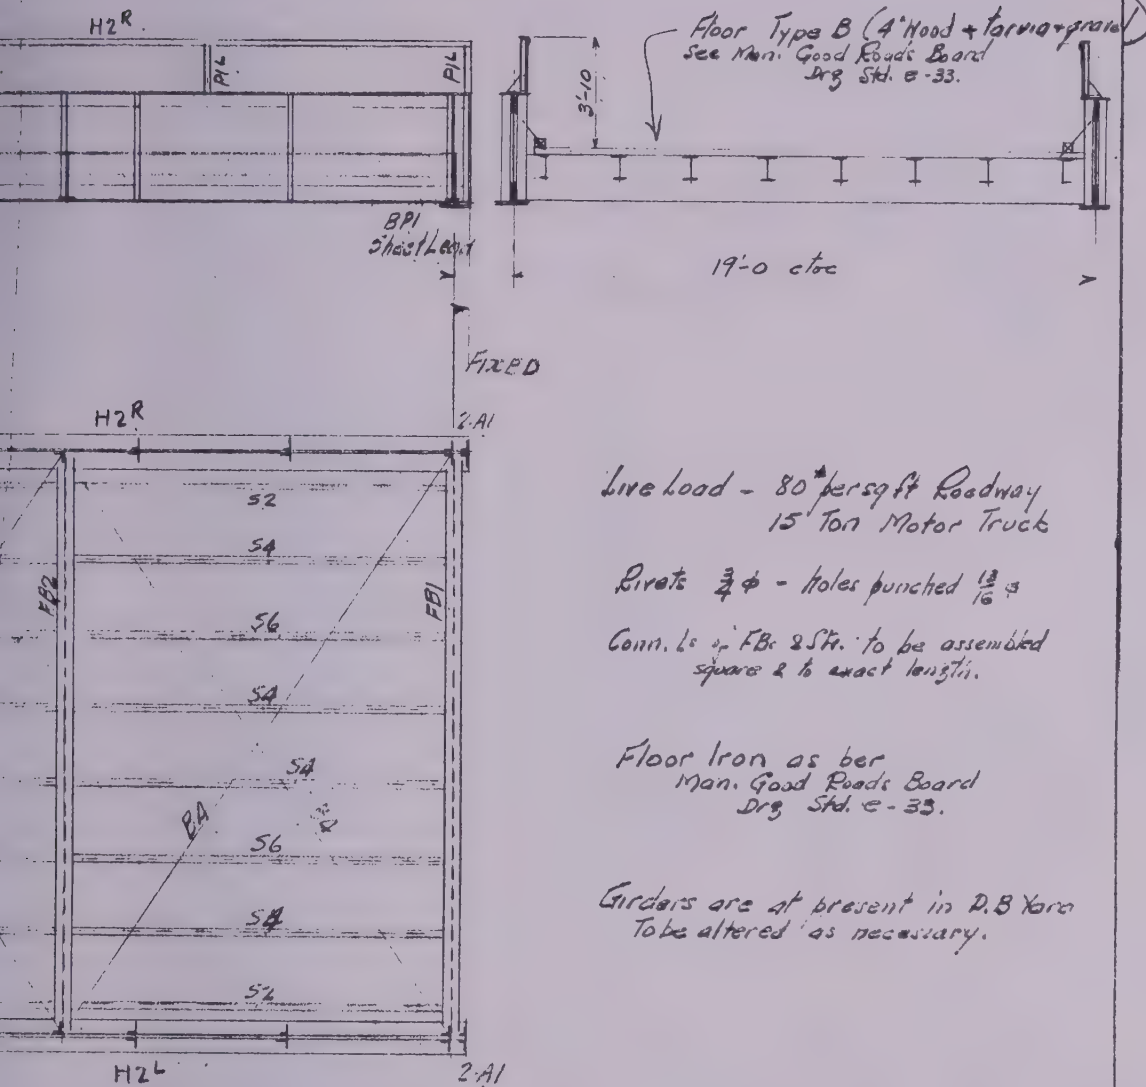 H2R
Floor Type B (4" Wood + tarvia + gravel)
See Man. Good Roads Board
Drg Std. e-33.
P1L
P1L
3'-10
BP1
Sheet Lead
19'-0 ctoc
FIXED
H2R
2-A1
S2
S4
FB2
FB1
S6
S4
S4
BA
S6
S4
S2
H2L
2-A1
Live Load - 80# per sq ft Roadway
15 Ton Motor Truck
Rivets 3/4 φ - holes punched 13/16 φ
Conn. Ls of FBs & Str. to be assembled
square & to exact length.
Floor Iron as per
Man. Good Roads Board
Drg Std. e-33.
Girders are at present in D.B Yard
To be altered as necessary.